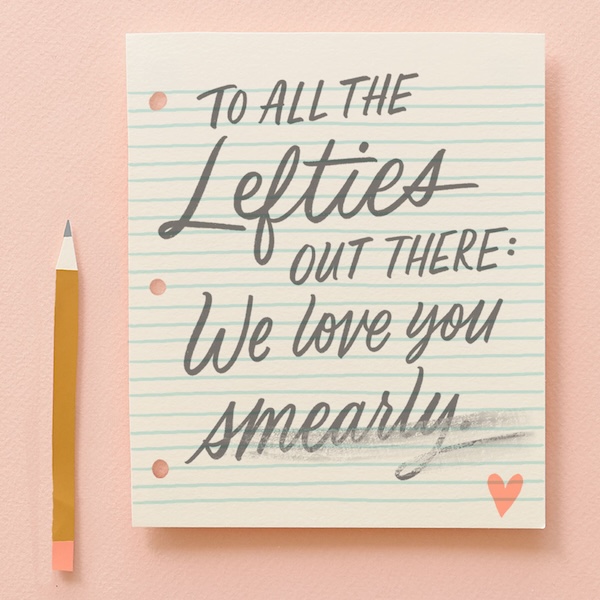 TO ALL THE
Lefties
OUT THERE:
We love you
smearly.